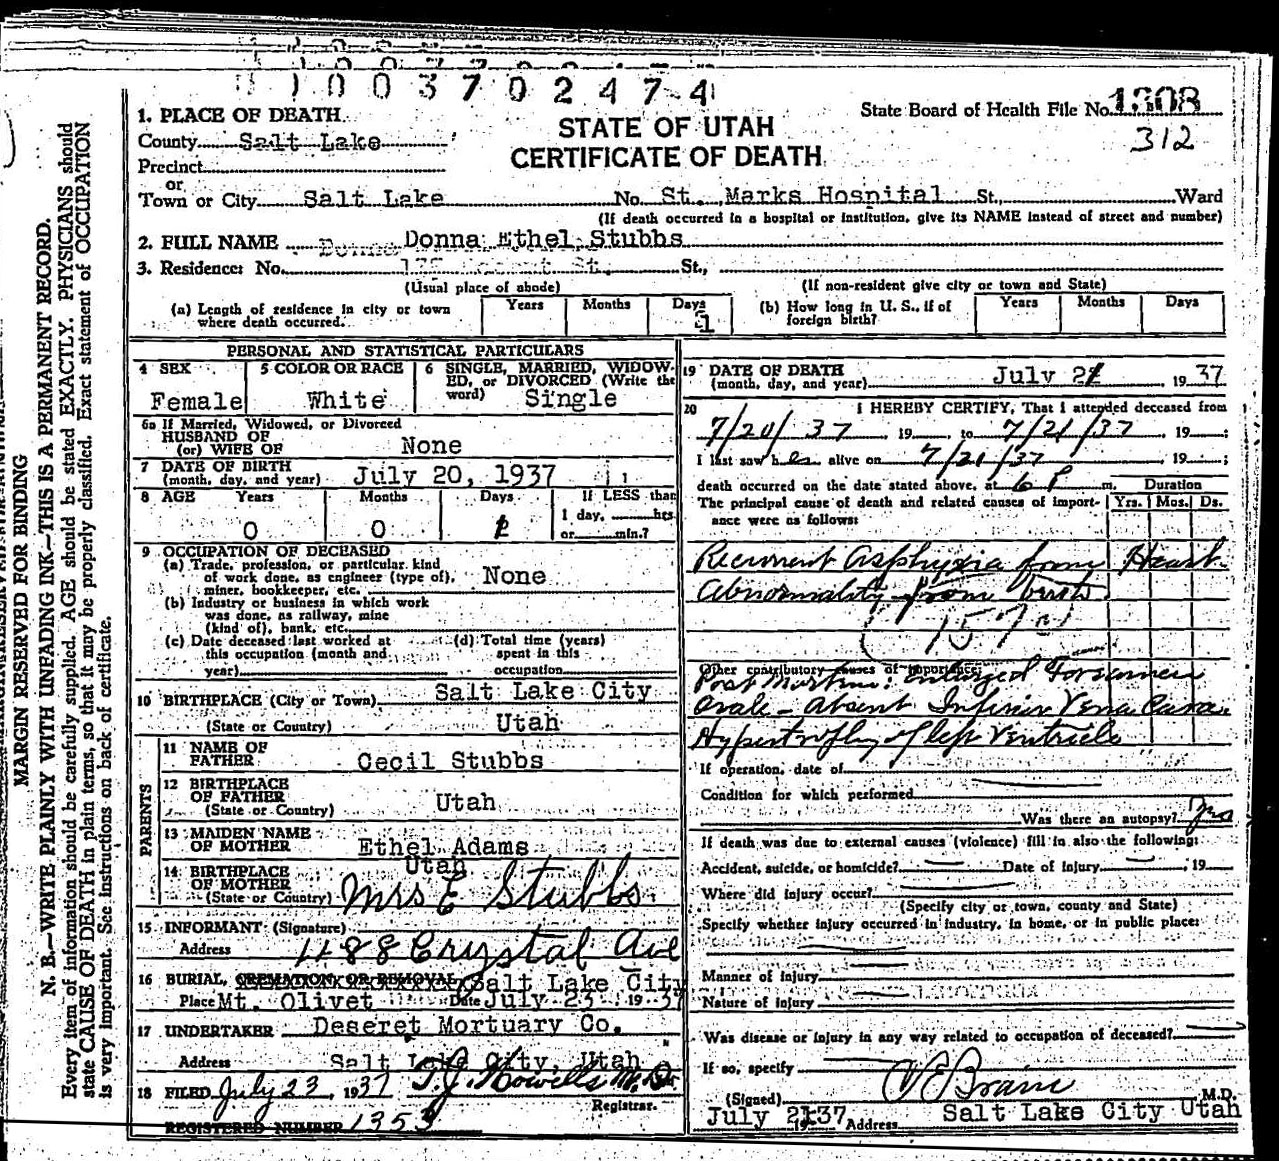 1003702474
State Board of Health File No. 1308
312
STATE OF UTAH
CERTIFICATE OF DEATH
1. PLACE OF DEATH
County Salt Lake
Precinct
or
Town or City Salt Lake No. St. Marks Hospital St., Ward
(If death occurred in a hospital or institution, give its NAME instead of street and number)
2. FULL NAME Donna Ethel Stubbs
3. Residence: No. St.,
(Usual place of abode) (If non-resident give city or town and State)
(a) Length of residence in city or town where death occurred. Years Months Days 1
(b) How long in U. S., if of foreign birth? Years Months Days
PERSONAL AND STATISTICAL PARTICULARS
4 SEX Female
5 COLOR OR RACE White
6 SINGLE, MARRIED, WIDOWED, or DIVORCED (Write the word) Single
6a If Married, Widowed, or Divorced
HUSBAND OF
(or) WIFE OF None
7 DATE OF BIRTH
(month, day, and year) July 20, 1937
8 AGE Years Months Days If LESS than
0 0 1 1 day, hrs.
or min.?
9 OCCUPATION OF DECEASED
(a) Trade, profession, or particular kind
of work done, as engineer (type of),
miner, bookkeeper, etc. None
(b) Industry or business in which work
was done, as railway, mine
(kind of), bank, etc.
(c) Date deceased last worked at
this occupation (month and
year)
(d) Total time (years)
spent in this
occupation
10 BIRTHPLACE (City or Town) Salt Lake City
(State or Country) Utah
PARENTS
11 NAME OF
FATHER Cecil Stubbs
12 BIRTHPLACE
OF FATHER
(State or Country) Utah
13 MAIDEN NAME
OF MOTHER Ethel Adams
14 BIRTHPLACE
OF MOTHER
(State or Country) Utah
15 INFORMANT (Signature) Mrs E Stubbs
Address 1188 Crystal Ave
16 BURIAL, CREMATION OR REMOVAL Salt Lake City
Place Mt. Olivet Date July 23 1937
17 UNDERTAKER Deseret Mortuary Co.
Address Salt Lake City, Utah
18 FILED July 23, 1937 T.J. Howells M.D.
Registrar.
REGISTERED NUMBER 1353
19 DATE OF DEATH
(month, day, and year) July 21, 1937
20 I HEREBY CERTIFY, That I attended deceased from
7/20/37, 19 to 7/21/37, 19 ;
I last saw her alive on 7/21/37, 19 ;
death occurred on the date stated above, at 6 P m. Duration
The principal cause of death and related causes of importance were as follows: Yrs. Mos. Ds.
Recurrent Asphyxia from Heart
Abnormality from birth
157
Other contributory causes of importance:
Post Mortem: Enlarged Foramen
Ovale - absent Inferior Vena Cava
Hypertrophy of left Ventricle
If operation, date of
Condition for which performed
Was there an autopsy? Yes
If death was due to external causes (violence) fill in also the following:
Accident, suicide, or homicide? Date of injury , 19
Where did injury occur?
(Specify city or town, county and State)
Specify whether injury occurred in industry, in home, or in public place:
Manner of Injury
Nature of Injury
Was disease or injury in any way related to occupation of deceased?
If so, specify
(Signed) M.D.
July 21 37 Address Salt Lake City Utah
MARGIN RESERVED FOR BINDING
N. B.—WRITE PLAINLY WITH UNFADING INK—THIS IS A PERMANENT RECORD.
Every item of information should be carefully supplied. AGE should be stated EXACTLY. PHYSICIANS should
state CAUSE OF DEATH in plain terms, so that it may be properly classified. Exact statement of OCCUPATION
is very important. See instructions on back of certificate.